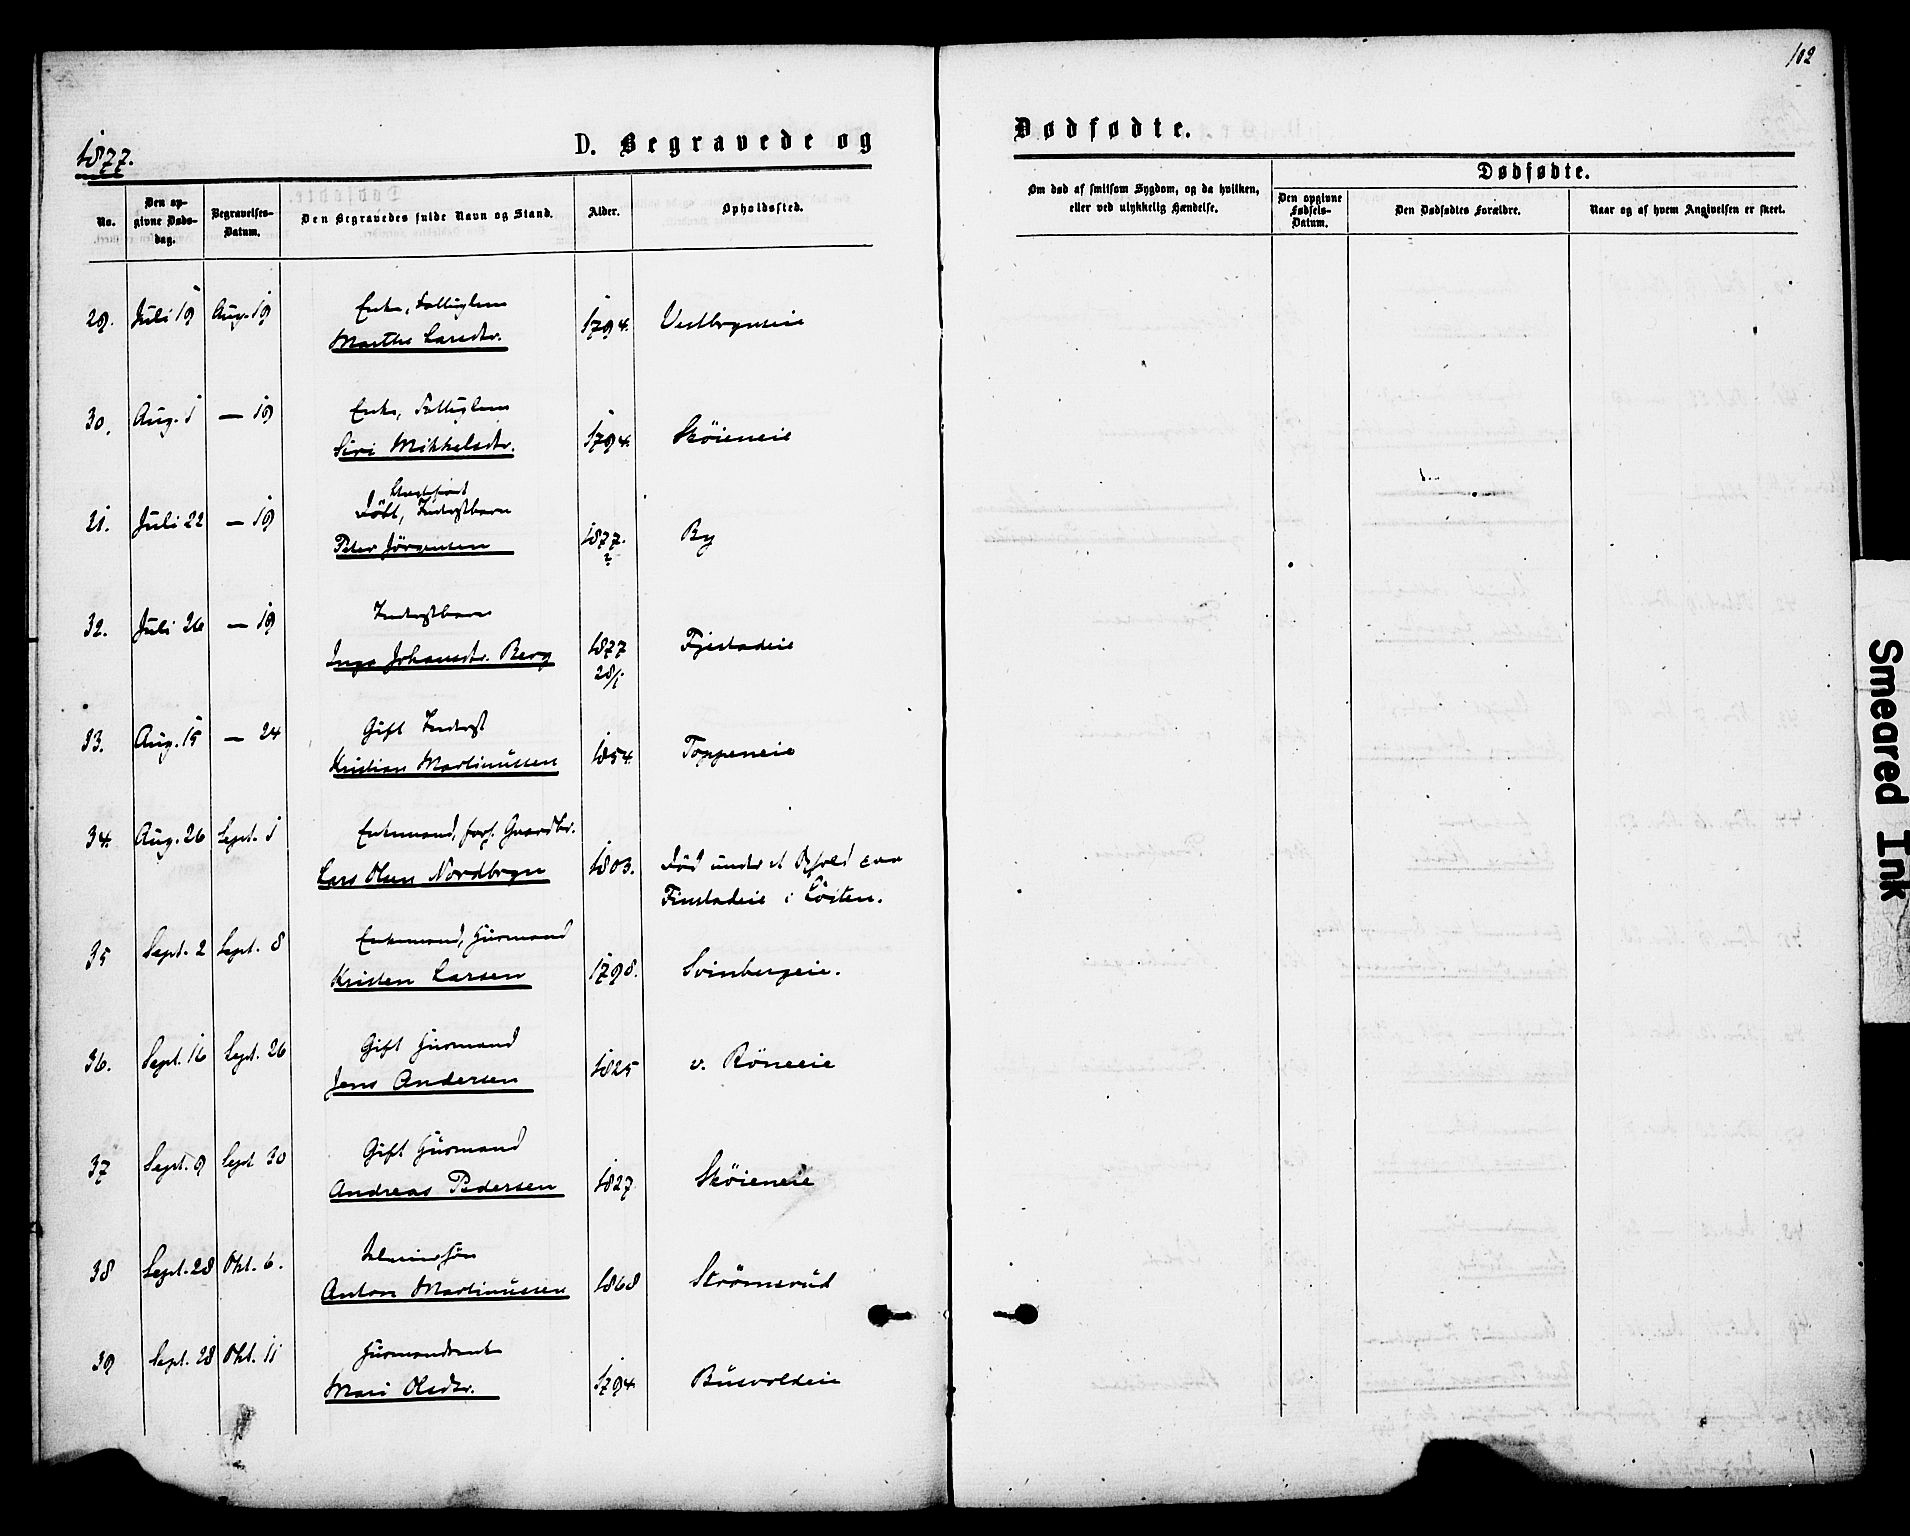 102
1877.
D. Begravede og
Dødfødte.
No.
Den op-
givne Døds-
dag.
Begravelses-
Datum.
Den Begravedes fulde Navn og Stand.
Alder.
Opholdssted.
Om død af smitsom Sygdom, og da hvilken,
eller ved ulykkelig Hændelse.
Dødfødte.
Den opgivne
Fødsels-
Datum.
Den Dødfødtes Forældre.
Naar og af hvem Angivelsen er skeet.
29. Juli 19 Aug. 19 Enke, Fattiglem
Marthe Larsdtr. 1794. Vestbyneie
30. Aug. 1 — 19 Enke, Fattiglem
Siri Mikkelsdtr. 1794. Skøieneie
31. Juli 22 — 19 Døbt, Inderstbarn
Peter Jörgensen 1877. By
32. Juli 26 — 19 Inderstbarn
Inga Johansdtr. Berg 1877 Fjestadeie
28/1
33. Aug. 15 — 24 Gift Inderst
Kristian Martinussen 1854. Toppeneie
34. Aug. 26 Sept. 1 Enkemand, Gaardbr.
Lars Olsen Nordbryn 1803. Död under et Ophold paa
Finstadeie i Löiten.
35 Sept. 2 Sept. 8 Enkemand, Husmand
Kristen Larsen 1798. Svinbergeie.
36. Sept. 16 Sept. 26 Gift Husmand
Jens Andersen 1825 v. Röneeie
37 Sept. 9 Sept 30 Gift Husmand
Andreas Pedersen 1827. Sköieneie
38 Sept. 28 Okt. 6.
Anton Martinussen 1868 Strömsrud
39 Sept. 28 Okt. 11 Husmandsenke
Mari Olsdtr. 1794 Busvoldeie
Smeared Ink